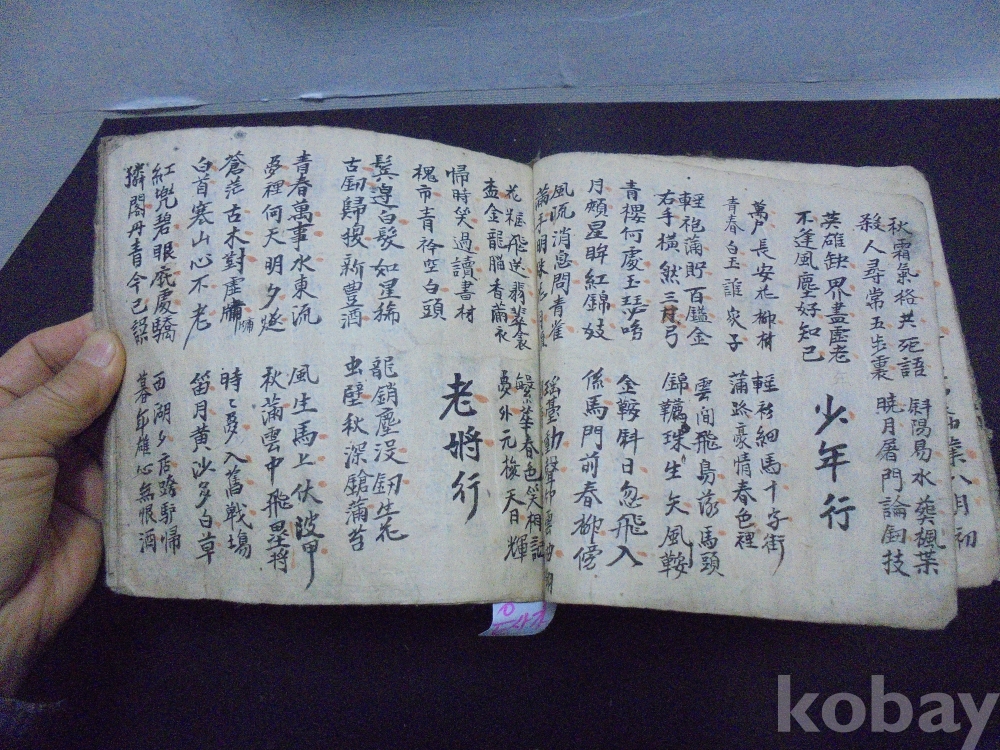 秋霜氣格共死語 斜陽易水葬楓葉
殺人尋常五步裏 曉月屠門論釖技
英雄缺界盡虛老
不逢風塵好知己
少年行
萬戶長安花柳材 輕衫細馬千字街
青春白玉誰家子 蒲路豪情春色裡
輕袍蒲貯百鎰金 雲間飛鳥落馬頭
右手橫煞三村弓 錦韉珠生矢風鞍
青樓何處玉琴嗚 金鞍斜日忽飛入
月頗星眸紅錦妓 係馬門前春柳傍
風流消息問青雀
花粧飛送翡翠衾 繁華春色笑相
盃金龍腦香 夢外元 天日輝
帰時笑過讀書材
槐市青衿空白頭
老將行
鬂邊白髮如星稀 龍銷塵沒釖生花
古釖歸擾新豊酒 虫壁秋深鎗蒲苔
青春萬事水東流 風生馬上伏波甲
夢裡何天明夕燧 秋蒲雲中飛星將
蒼茫古木對虛牗 時時夢入舊戰場
白首寒山心不老 笛月黃沙多白草
紅兜碧眼 慶驕 西湖夕店跨馿帰
獜閣丹青今已誤 暮年雄心無恨酒
八月初
kobay